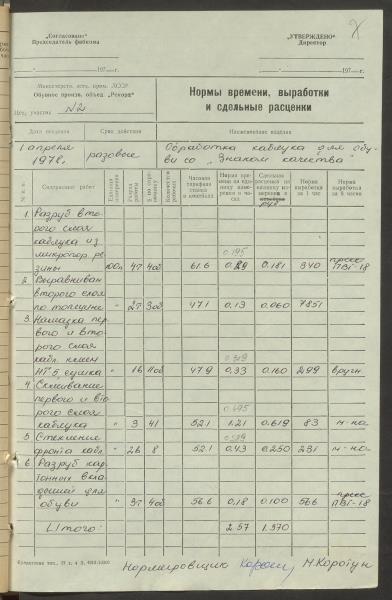 „Согласовано"
Председатель фабкома
„УТВЕРЖДЕНО"
Директор
„ " 197 г.
„ " 197 г.
Министерство легк. пром. ЛССР
Обувное произв. объед. „Рекорд"
Цех, участок №2
Нормы времени, выработки
и сдельные расценки
Дата введения Срок действия Наименование изделия
1 апреля разовые Обработка каблука для обу-
1978г. ви со „Знаком качества"
№ п. п. Содержание работ Единица измерения Разряд работы Часовая тарифная ставка в копейках Норма времени на единицу измерения в часах Сдельная расценка на единицу измерения в руб Норма выработки за 1 час Норма выработки за 8 часов
1. Разруб вто-
рого слоя
каблука из
микропор. ре- 0.195
зины 100п. 61.6 0.29 0.181 340 пресс ПВГ-18
2. Выравниван
второго слоя
по толщине " 47.1 0.13 0.060 7851
3. Намазка пер-
вого и вто-
рого слоя
кабл. клеем
НТ 5 сушка " 47.9 0.33 0.160 299 вручн
4. Склеивание
первого и вто
рого слоя
каблука " 3 41 52.1 1.21 0.619 83 м-на
5. Стекление
фронта кабл. " 8 52.1 0.43 0.250 231 м-на
6. Разруб кар-
тонных вкла
дышей для
обуви " 56.6 0.18 0.100 566 пресс ПВГ-18
Итого: 2.57 1.370
Нормировщик Н. Коротун